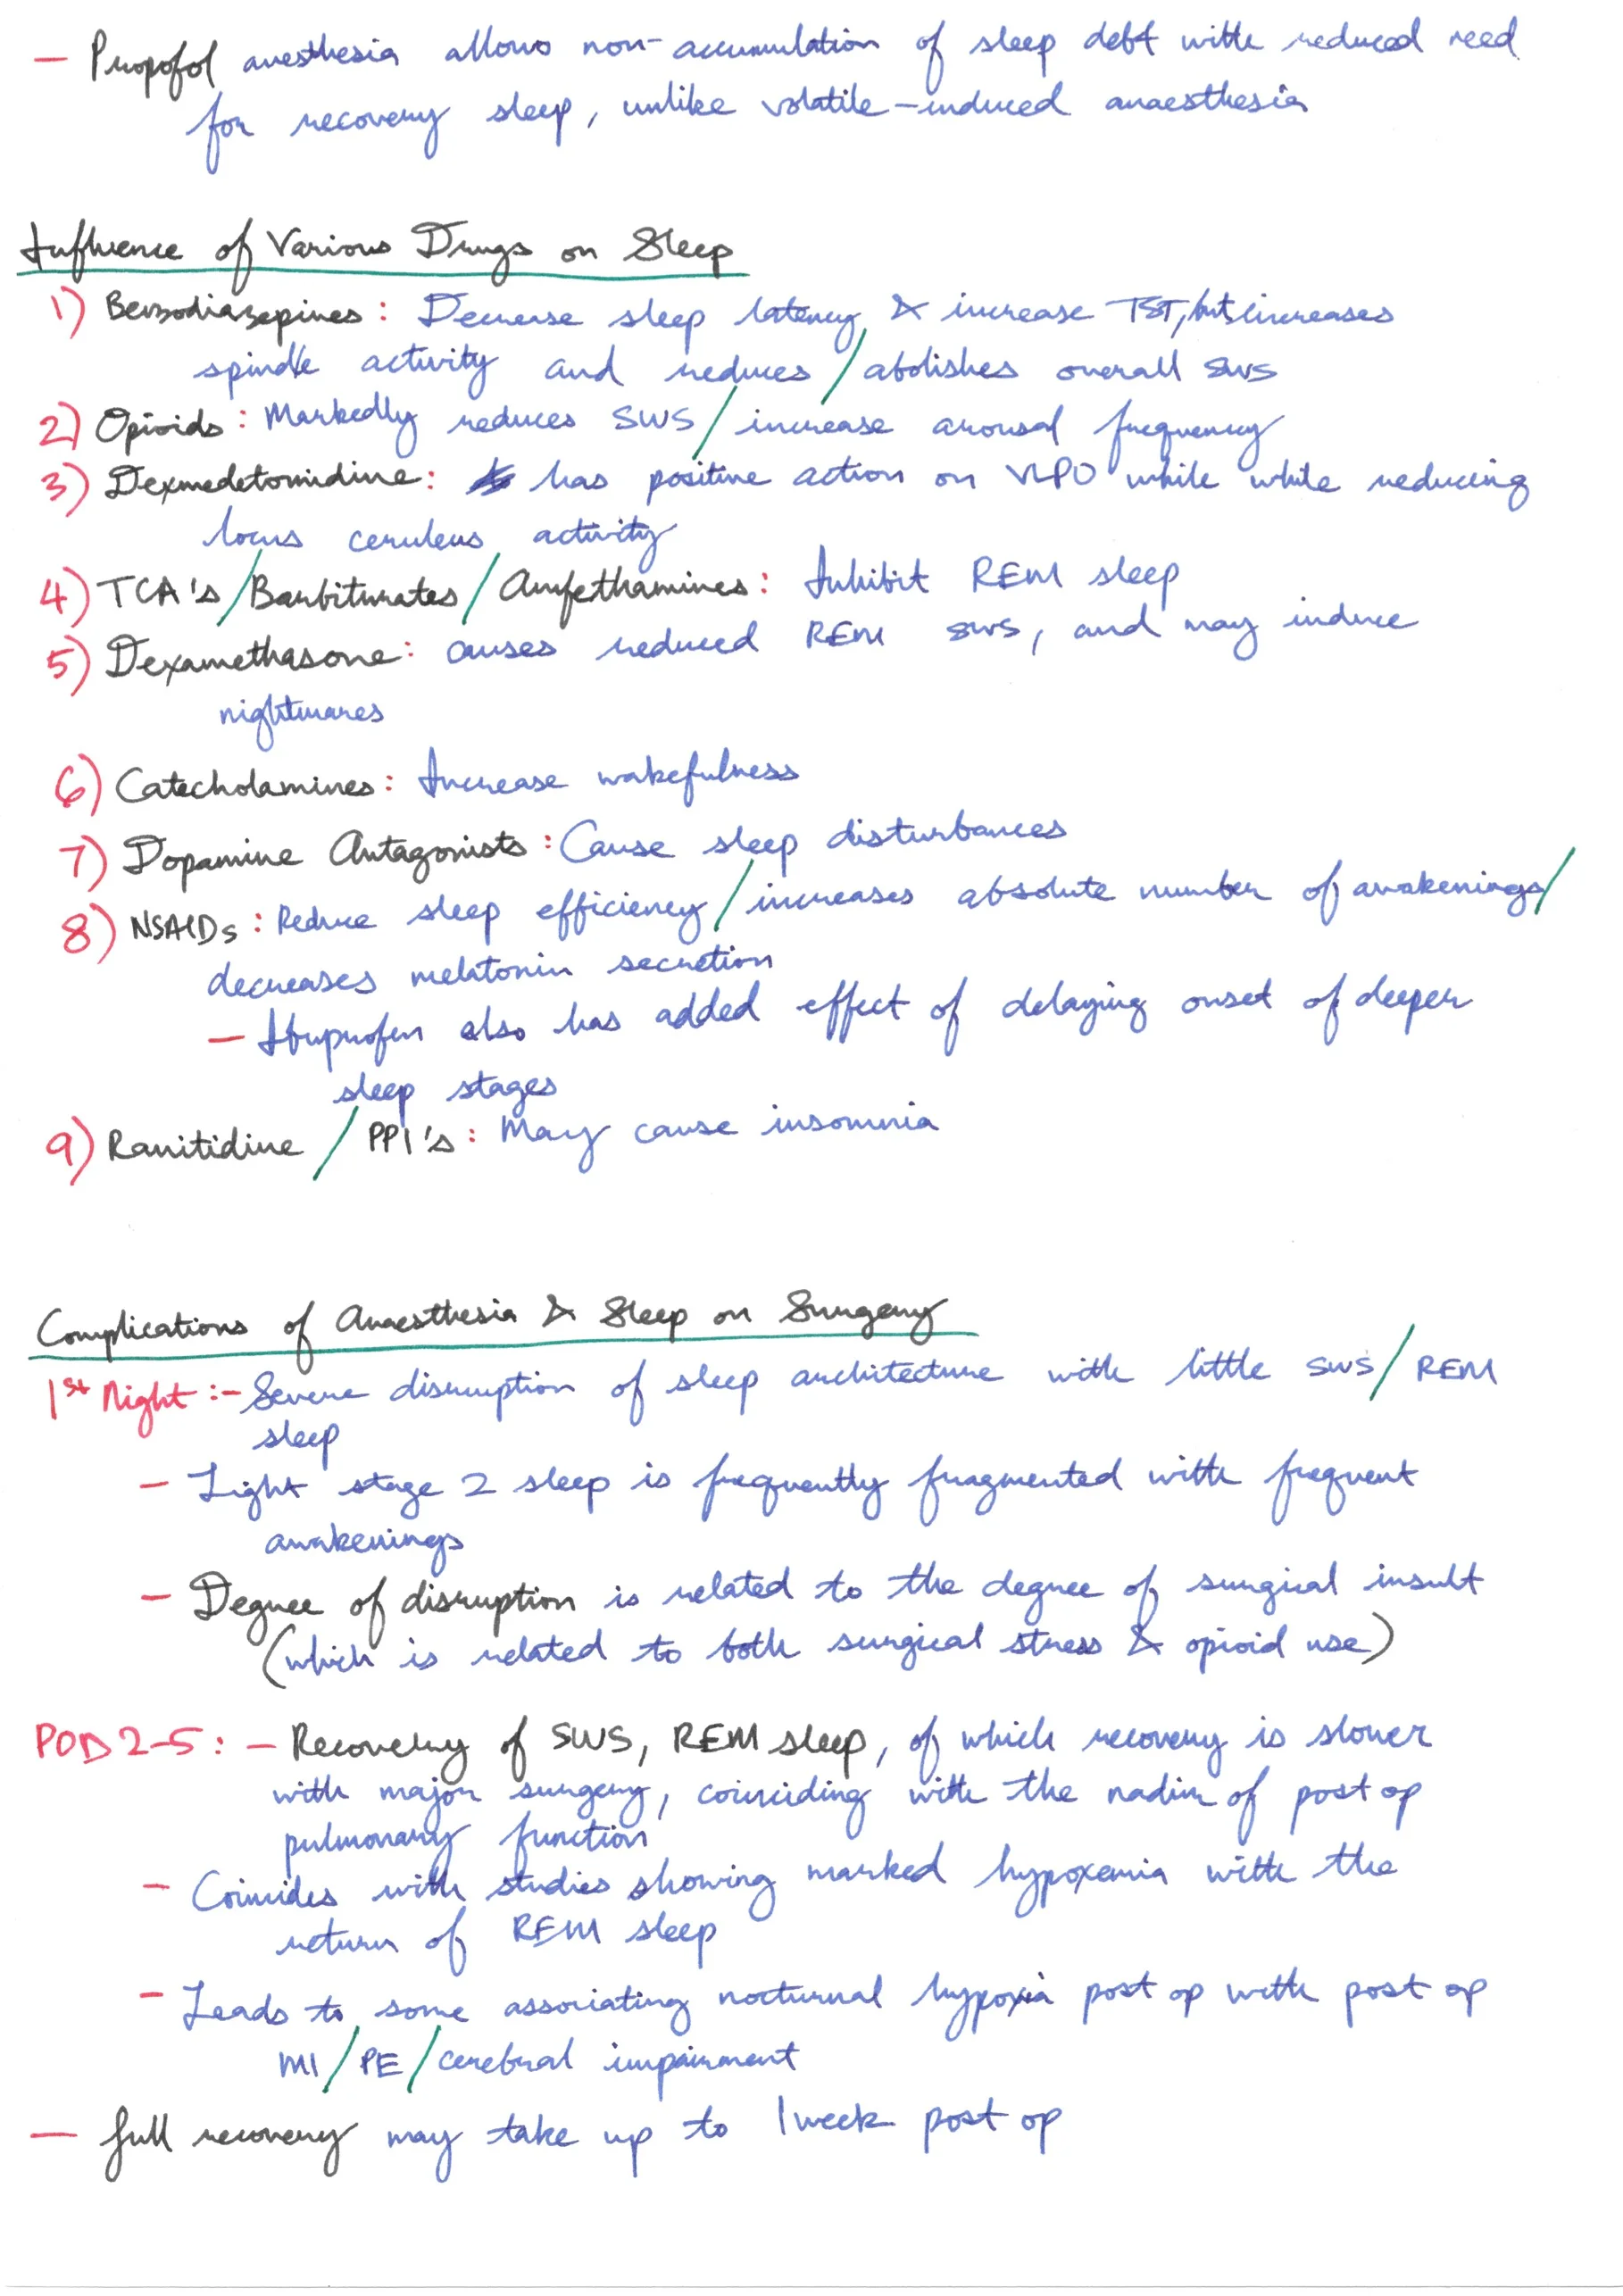 — Propofol anesthesia allows non-accumulation of sleep debt with reduced need
for recovery sleep, unlike volatile-induced anaesthesia
Influence of Various Drugs on Sleep
1) Benzodiazepines: Decrease sleep latency & increase TST, but increases
spindle activity and reduces / abolishes overall SWS
2) Opioids: Markedly reduces SWS / increase arousal frequency
3) Dexmedetomidine: has positive action on VLPO while while reducing
locus ceruleus activity
4) TCA's / Barbiturates / Amfethamines: Inhibit REM sleep
5) Dexamethasone: causes reduced REM SWS, and may induce
nightmares
6) Catecholamines: Increase wakefulness
7) Dopamine Antagonists: Cause sleep disturbances
8) NSAIDs: Reduce sleep efficiency / increases absolute number of awakenings /
decreases melatonin secretion
— Ibuprofen also has added effect of delaying onset of deeper
sleep stages
9) Ranitidine / PPI's: May cause insomnia
Complications of Anaesthesia & Sleep on Surgery
1st Night :- Severe disruption of sleep architecture with little SWS / REM
sleep
— Light stage 2 sleep is frequently fragmented with frequent
awakenings
— Degree of disruption is related to the degree of surgical insult
(which is related to both surgical stress & opioid use)
POD 2-5: — Recovery of SWS, REM sleep, of which recovery is slower
with major surgery, coinciding with the nadir of post op
pulmonary function
— Coincides with studies showing marked hypoxemia with the
return of REM sleep
— Leads to some associating nocturnal hypoxia post op with post op
MI / PE / cerebral impairment
— full recovery may take up to 1 week post op